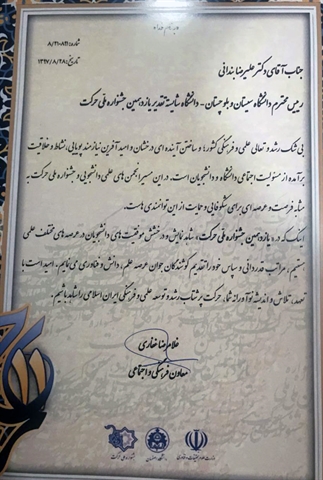 شماره: ۸/۲۱۰۸۹۱
تاریخ: ۱۳۹۷/۸/۲۸
جناب آقای دکتر علیرضا بندانی
رییس محترم دانشگاه سیستان و بلوچستان - دانشگاه شایسته تقدیر یازدهمین جشنواره ملی حرکت
بی شک رشد و تعالی علمی و فرهنگی کشور و ساختن آینده ای درخشان و امید آفرین نیازمند پویایی، نشاط و خلاقیت
برآمده از مسئولیت اجتماعی دانشگاه و دانشجویان است. در این مسیر انجمن های علمی دانشجویی و جشنواره ملی حرکت به
مثابه فرصت و عرصه ای برای شکوفایی و حمایت از این توانمندی هاست.
اینک که در «یازدهمین جشنواره ملی حرکت»، شاهد نمایش و درخشش موفقیت های دانشجویان در عرصه های مختلف علمی
هستیم، مراتب قدردانی و سپاس خود را تقدیم کوشندگان جوان عرصه علم، دانش و فناوری می نمایم. امید است با
تعهد، تلاش و اندیشه نوآورانه شما، حرکت پرشتاب رشد و توسعه علمی و فرهنگی ایران اسلامی را شاهد باشیم.
غلامرضا غفاری
معاون فرهنگی و اجتماعی